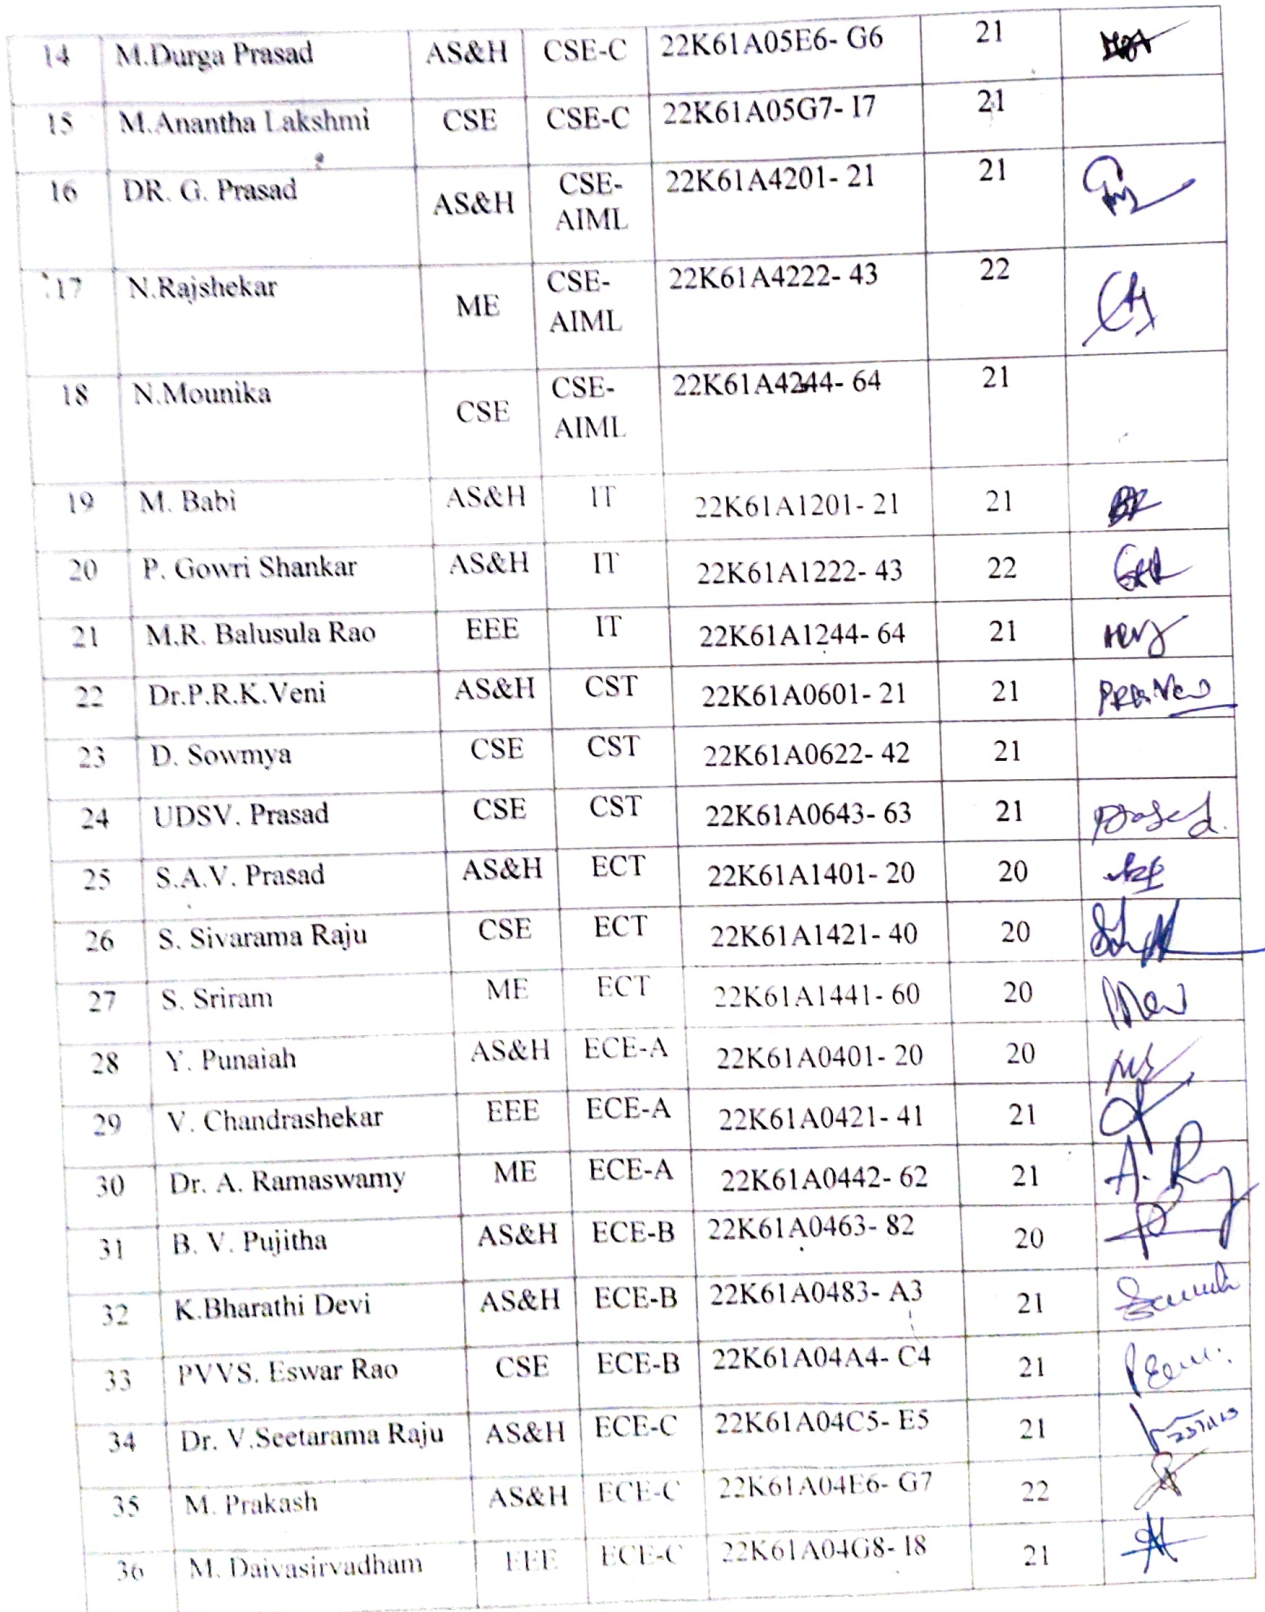 14 M.Durga Prasad AS&H CSE-C 22K61A05E6- G6 21
15 M.Anantha Lakshmi CSE CSE-C 22K61A05G7- I7 21
16 DR. G. Prasad AS&H CSE- 22K61A4201- 21 21
AIML
17 N.Rajshekar ME CSE- 22K61A4222- 43 22
AIML
18 N.Mounika CSE CSE- 22K61A4244- 64 21
AIML
19 M. Babi AS&H IT 22K61A1201- 21 21
20 P. Gowri Shankar AS&H IT 22K61A1222- 43 22
21 M.R. Balusula Rao EEE IT 22K61A1244- 64 21
22 Dr.P.R.K.Veni AS&H CST 22K61A0601- 21 21
23 D. Sowmya CSE CST 22K61A0622- 42 21
24 UDSV. Prasad CSE CST 22K61A0643- 63 21 Prasad.
25 S.A.V. Prasad AS&H ECT 22K61A1401- 20 20
26 S. Sivarama Raju CSE ECT 22K61A1421- 40 20
27 S. Sriram ME ECT 22K61A1441- 60 20
28 Y. Punaiah AS&H ECE-A 22K61A0401- 20 20
29 V. Chandrashekar EEE ECE-A 22K61A0421- 41 21
30 Dr. A. Ramaswamy ME ECE-A 22K61A0442- 62 21
31 B. V. Pujitha AS&H ECE-B 22K61A0463- 82 20
32 K.Bharathi Devi AS&H ECE-B 22K61A0483- A3 21
33 PVVS. Eswar Rao CSE ECE-B 22K61A04A4- C4 21
34 Dr. V.Seetarama Raju AS&H ECE-C 22K61A04C5- E5 21
35 M. Prakash AS&H ECE-C 22K61A04E6- G7 22
36 M. Daivasirvadham EEE ECE-C 22K61A04G8- I8 21